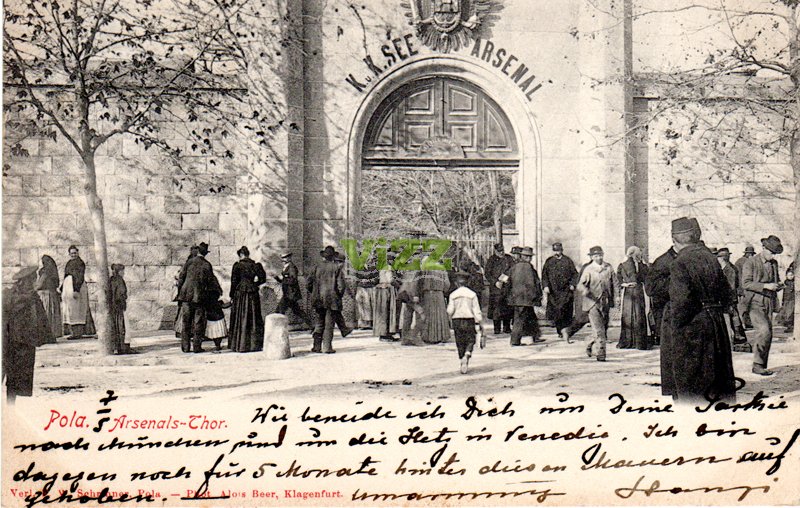 K.K. SEE ARSENAL
VIZZ
Pola. 7/5 Arsenals-Thor.
Wie beneide ich Dich um Deine Partie
nach München und um die Hetz in Venedig. Ich bin
dagegen noch für 5 Monate hinter diesen Mauern auf
gehoben. Umarmung Hansi
Pola — Phot. Alois Beer, Klagenfurt.